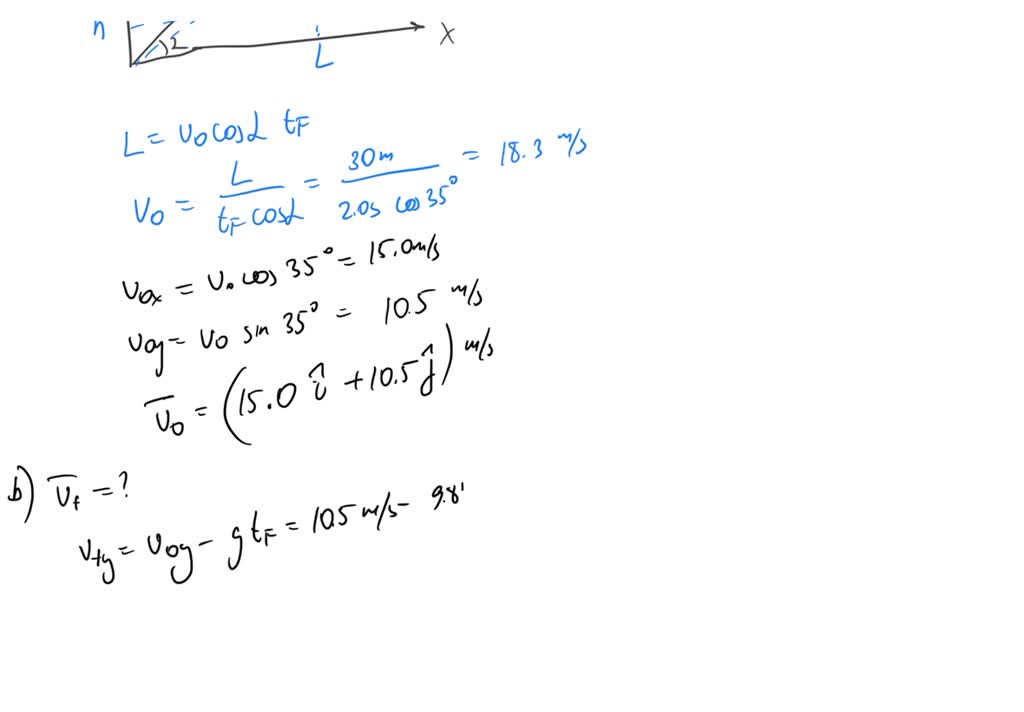 n
α
L
x
L = v₀ cosα t_F
v₀ = L / (t_F cosα) = 30m / (2.0s cos 35°) = 18.3 m/s
v₀ₓ = v₀ cos 35° = 15.0 m/s
v₀y = v₀ sin 35° = 10.5 m/s
v̄₀ = (15.0 î + 10.5 ĵ) m/s
b) v̄_f = ?
v_fy = v₀y - g t_F = 10.5 m/s - 9.8